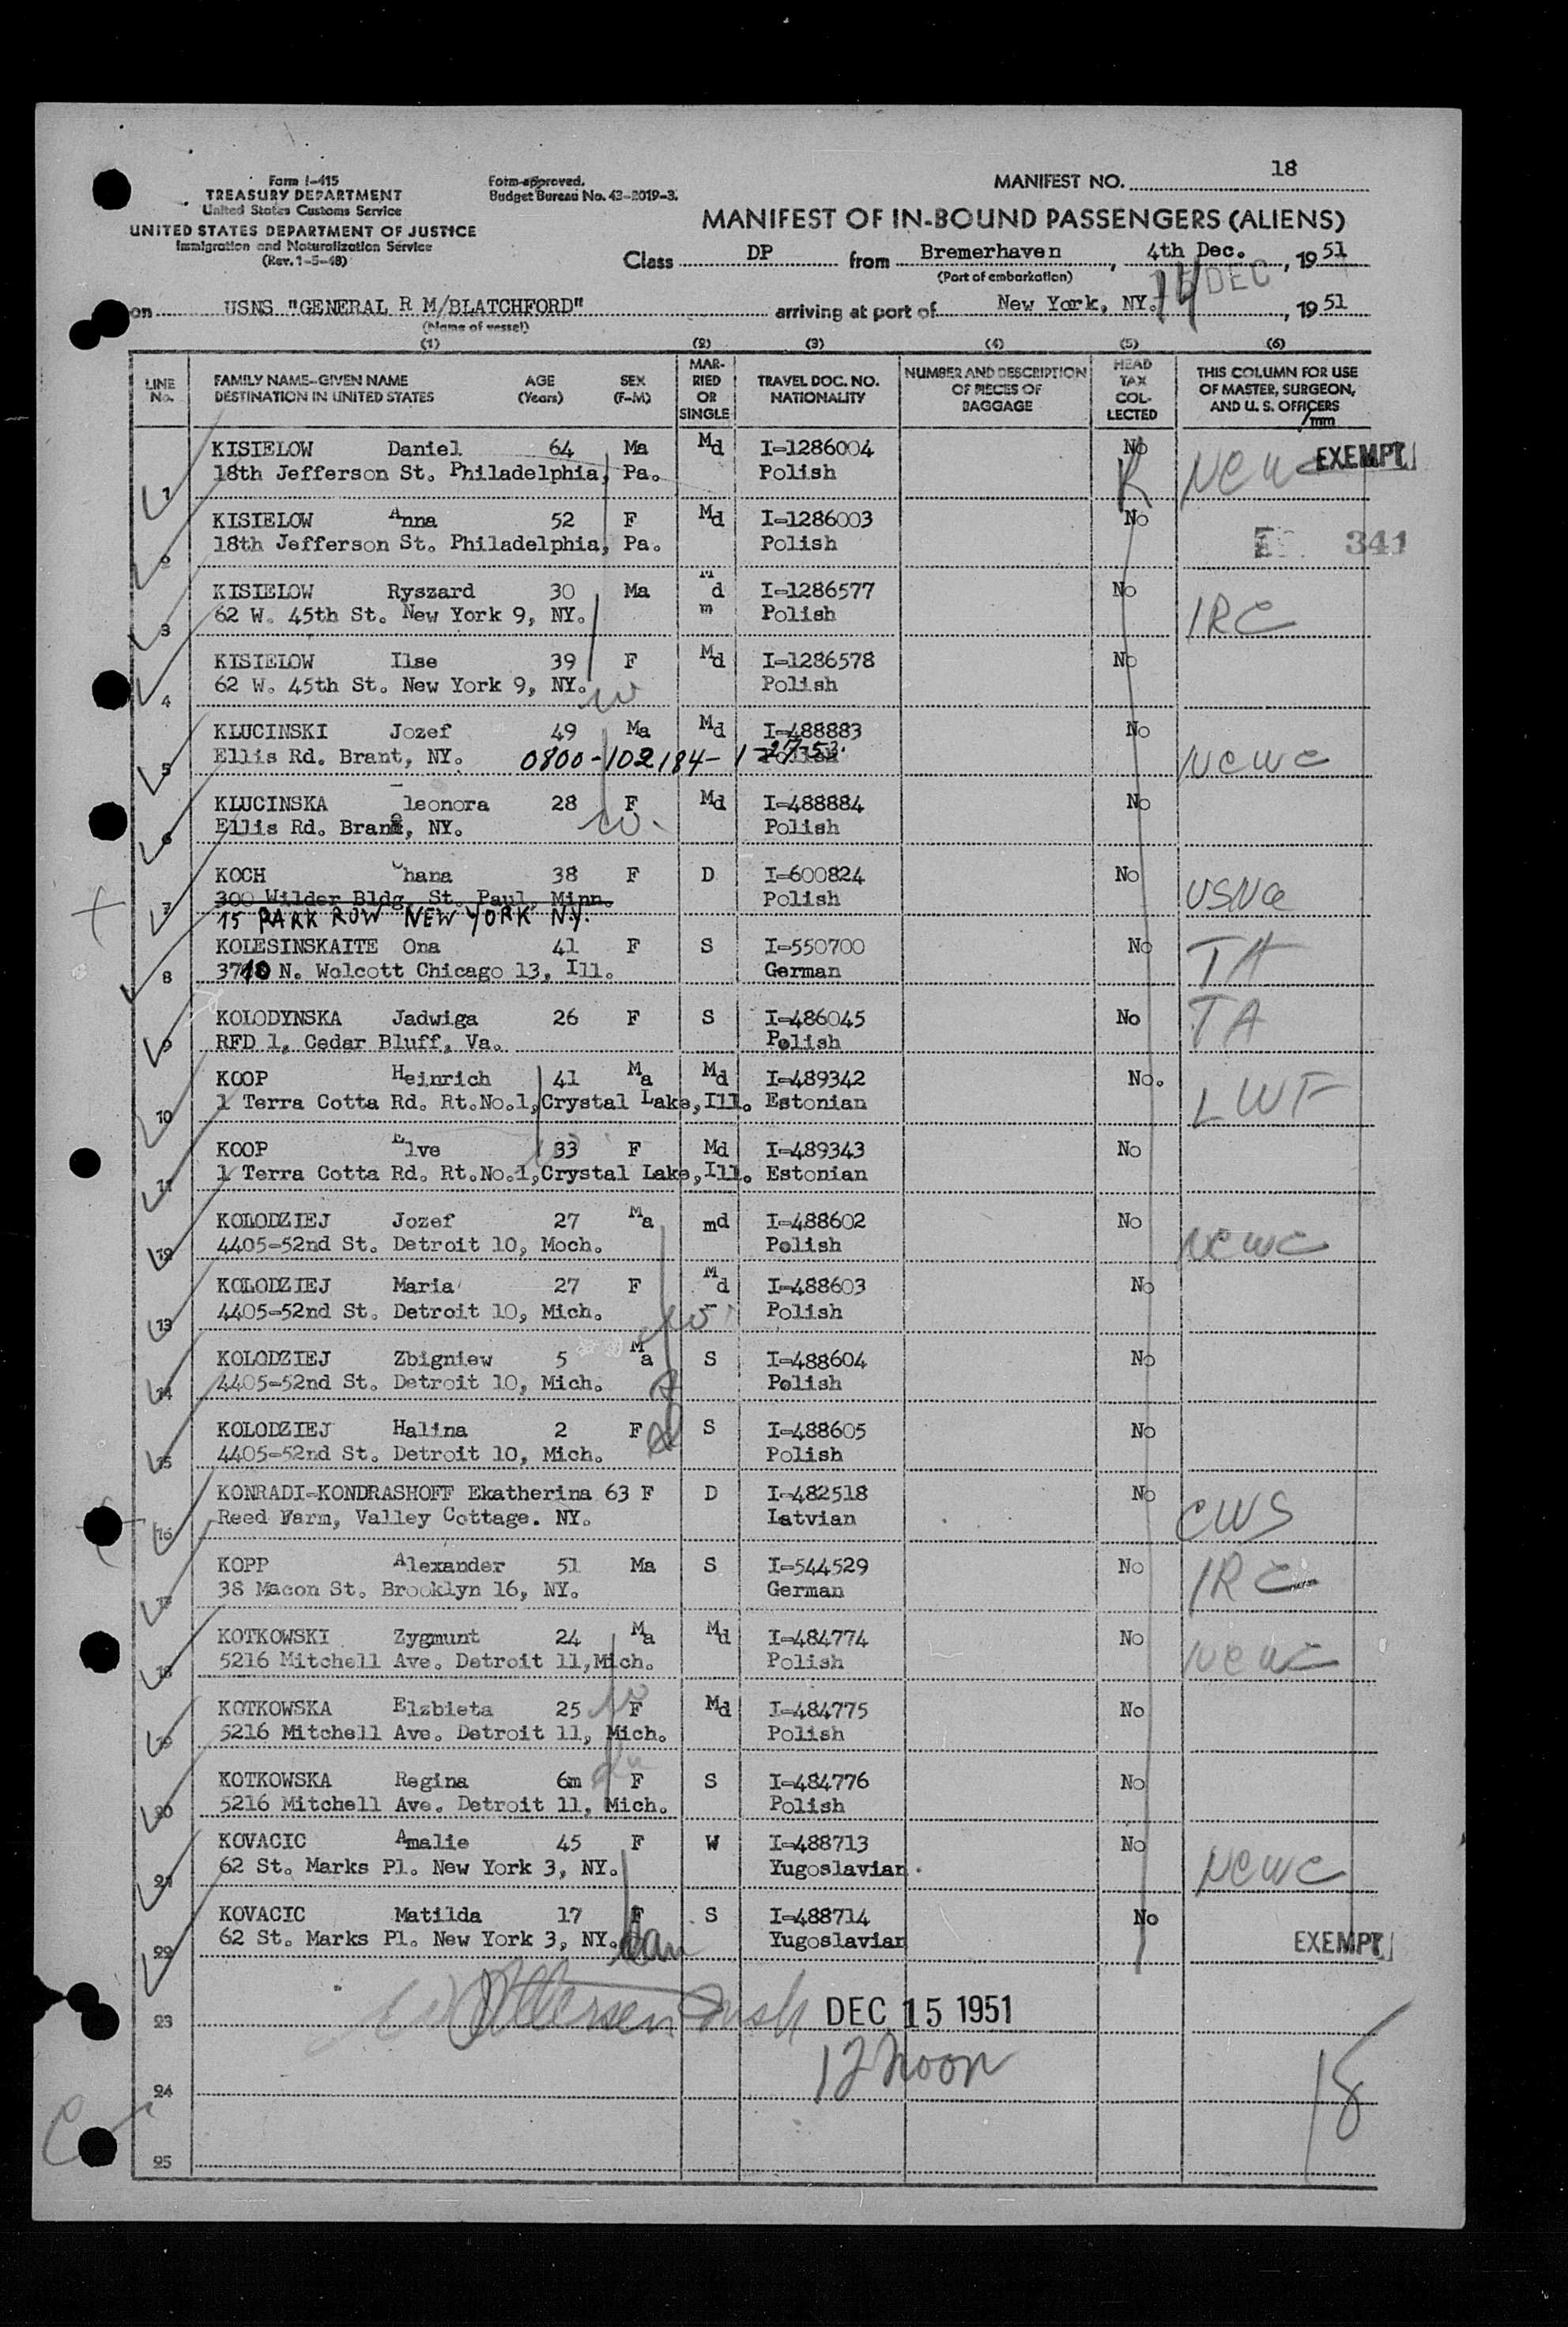 18
Form I-415
TREASURY DEPARTMENT
United States Customs Service
UNITED STATES DEPARTMENT OF JUSTICE
Immigration and Naturalization Service
(Rev. 1-5-48)
Form approved.
Budget Bureau No. 43-R019-3.
MANIFEST NO.
MANIFEST OF IN-BOUND PASSENGERS (ALIENS)
Class DP from Bremerhaven, 4th Dec., 1951
(Port of embarkation)
15 DEC
on USNS "GENERAL R M/BLATCHFORD" arriving at port of New York, NY. 14, 1951
(Name of vessel)
(1) (2) (3) (4) (5) (6)
LINE No. FAMILY NAME-GIVEN NAME DESTINATION IN UNITED STATES AGE (Years) SEX (F-M) MARRIED OR SINGLE TRAVEL DOC. NO. NATIONALITY NUMBER AND DESCRIPTION OF PIECES OF BAGGAGE HEAD TAX COLLECTED THIS COLUMN FOR USE OF MASTER, SURGEON, AND U. S. OFFICERS
/mm
KISIELOW Daniel 64 Ma Md I-1286004 No NCWC EXEMPT
1 18th Jefferson St. Philadelphia, Pa. Polish
KISIELOW Anna 52 F Md I-1286003 No
2 18th Jefferson St. Philadelphia, Pa. Polish 341
KISIELOW Ryszard 30 Ma Md I-1286577 No
3 62 W. 45th St. New York 9, NY. m Polish IRC
KISIELOW Ilse 39 F Md I-1286578 No
4 62 W. 45th St. New York 9, NY. Polish
w
KLUCINSKI Jozef 49 Ma Md I-488883 No
5 Ellis Rd. Brant, NY. 0800-102184- 1-27-53. Polish NCWC
KLUCINSKA leonora 28 F Md I-488884 No
6 Ellis Rd. Brant, NY. w. Polish
KOCH Chana 38 F D I-600824 No
7 300 Wilder Bldg. St. Paul, Minn. Polish USNA
15 PARK ROW NEW YORK N.Y.
KOLESINSKAITE Ona 41 F S I-550700 No TA
8 3710 N. Wolcott Chicago 13, Ill. German
KOLODYNSKA Jadwiga 26 F S I-486045 No TA
9 RFD 1, Cedar Bluff, Va. Polish
KOOP Heinrich 41 Ma Md I-489342 No.
10 1 Terra Cotta Rd. Rt.No.1,Crystal Lake,Ill. Estonian LWF
KOOP Elve 33 F Md I-489343 No
11 1 Terra Cotta Rd. Rt.No.1,Crystal Lake,Ill. Estonian
KOLODZIEJ Jozef 27 Ma md I-488602 No
12 4405-52nd St. Detroit 10, Moch. Polish NCWC
KOLODZIEJ Maria 27 F Md I-488603 No
13 4405-52nd St. Detroit 10, Mich. w Polish
KOLODZIEJ Zbigniew 5 Ma S I-488604 No
14 4405-52nd St. Detroit 10, Mich. Polish
KOLODZIEJ Halina 2 F S I-488605 No
15 4405-52nd St. Detroit 10, Mich. Polish
KONRADI-KONDRASHOFF Ekatherina 63 F D I-482518 No
16 Reed Farm, Valley Cottage. NY. Latvian CWS
KOPP Alexander 51 Ma S I-544529 No
17 38 Macon St. Brooklyn 16, NY. German IRC
KOTKOWSKI Zygmunt 24 Ma Md I-484774 No
18 5216 Mitchell Ave. Detroit 11,Mich. Polish NCWC
KOTKOWSKA Elzbieta 25 w F Md I-484775 No
19 5216 Mitchell Ave. Detroit 11, Mich. Polish
KOTKOWSKA Regina 6m F S I-484776 No
20 5216 Mitchell Ave. Detroit 11, Mich. Polish
KOVACIC Amalie 45 F W I-488713 No
21 62 St. Marks Pl. New York 3, NY. Yugoslavian NCWC
KOVACIC Matilda 17 F S I-488714 No
22 62 St. Marks Pl. New York 3, NY. Yugoslavian EXEMPT
23 DEC 15 1951
12 noon
24
18
25